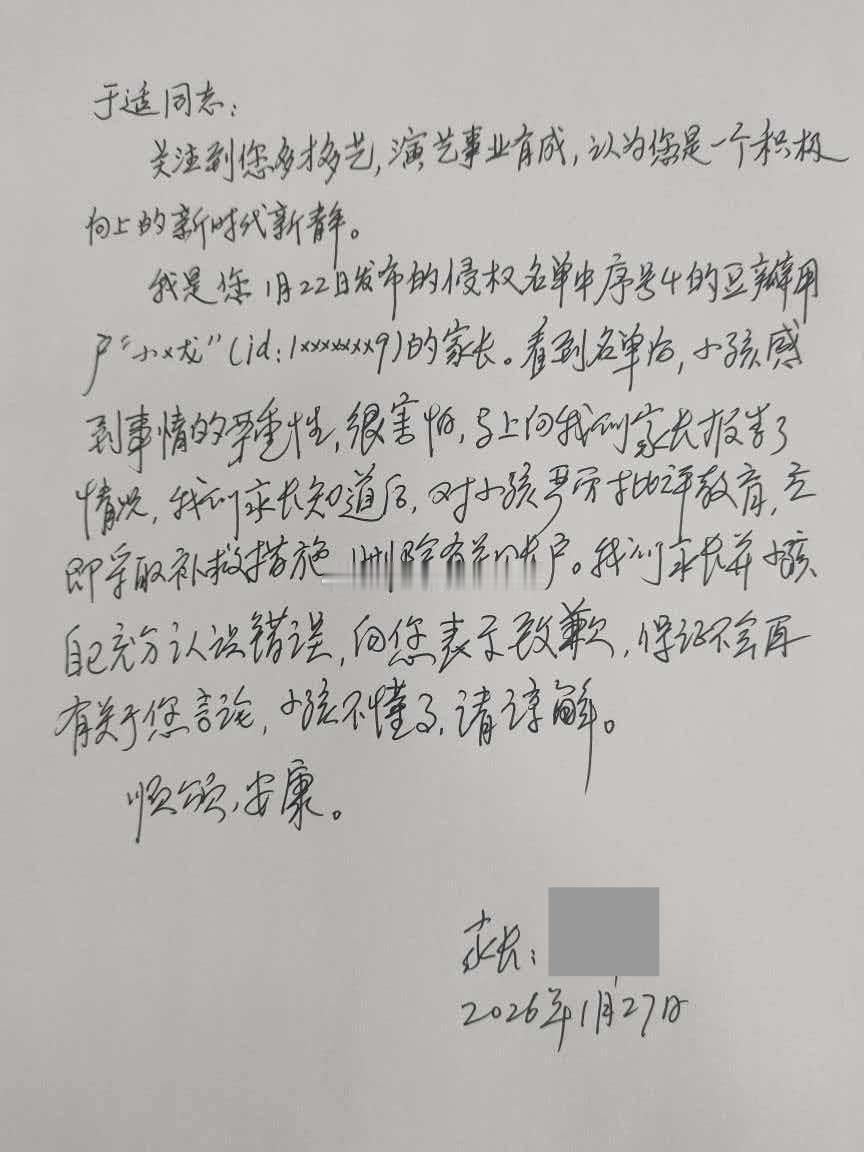 于适同志：
关注到您多才多艺，演艺事业有成，认为您是一个积极
向上的新时代新青年。
我是您1月22日发布的侵权名单中序号4的豆瓣用
户“小x龙”（id：1xxxxxxx9）的家长。看到名单后，小孩感
到事情的严重性，很害怕，马上向我们家长报告了
情况，我们家长知道后，对小孩严厉批评教育，立
即采取补救措施，删除有关账户。我们家长并小孩
自己充分认识错误，向您表示致歉，保证不会再
有关于您言论，小孩不懂事，请谅解。
顺颂，安康。
家长：
2026年1月27日